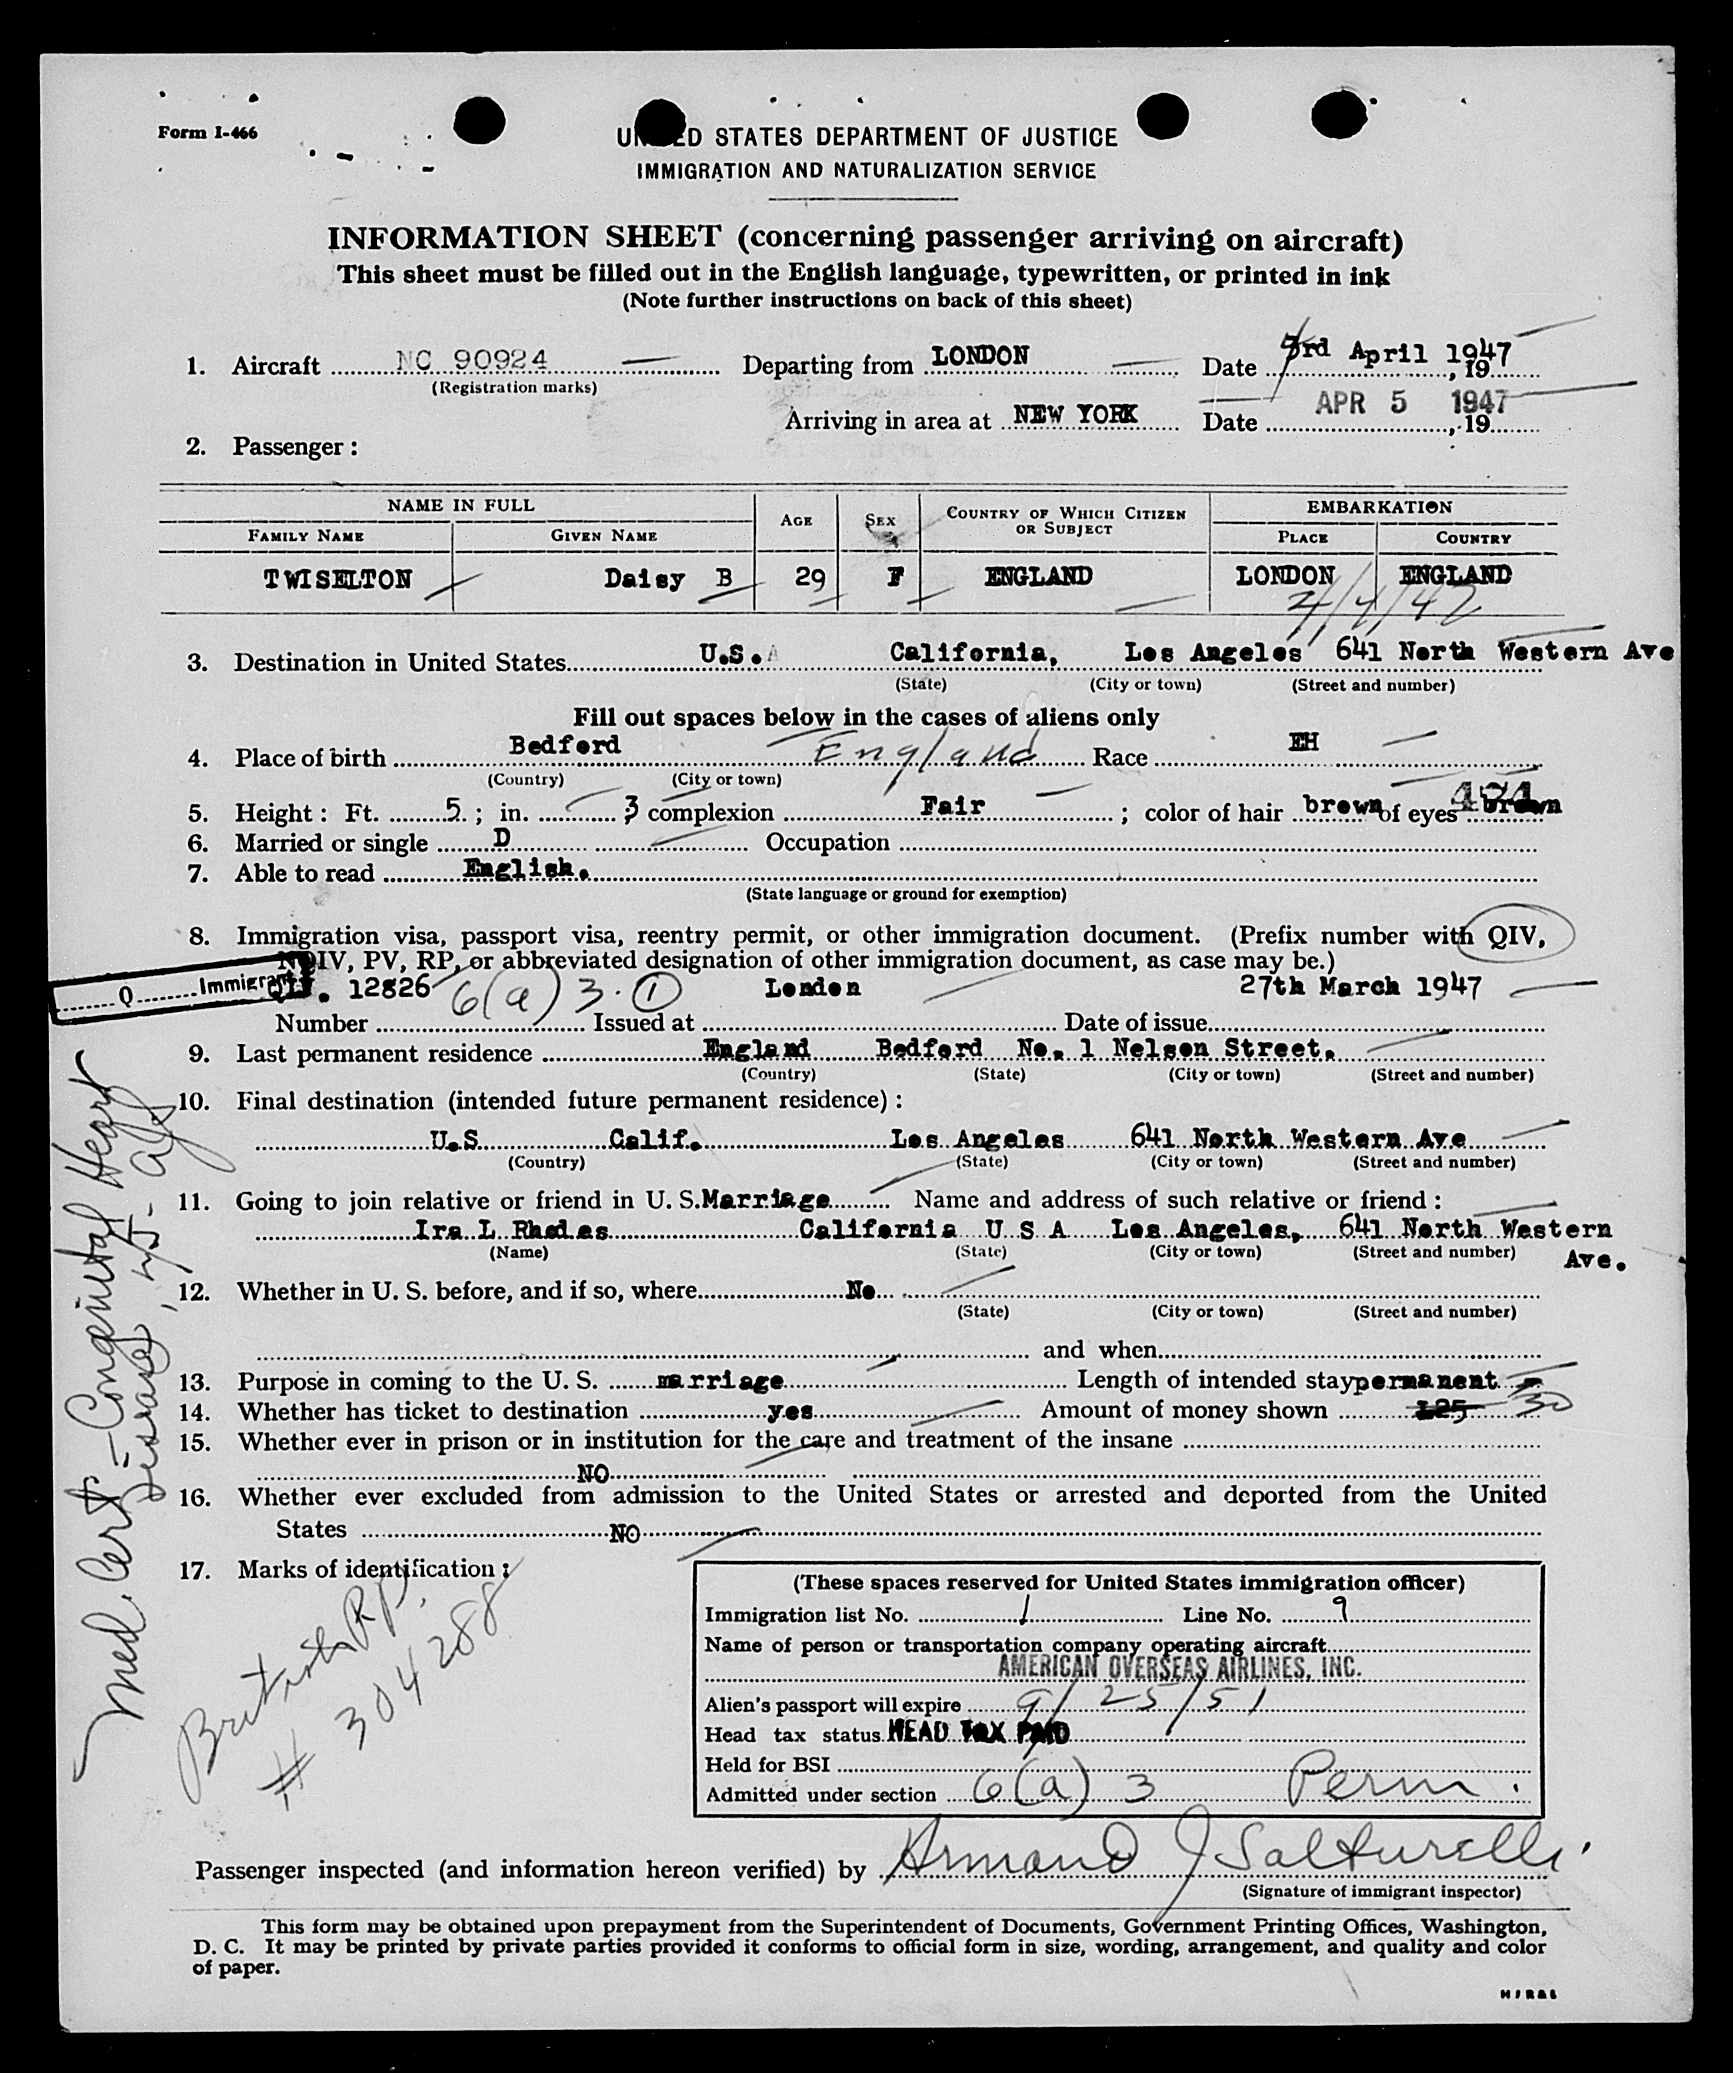 Form I-466
UNITED STATES DEPARTMENT OF JUSTICE
IMMIGRATION AND NATURALIZATION SERVICE
INFORMATION SHEET (concerning passenger arriving on aircraft)
This sheet must be filled out in the English language, typewritten, or printed in ink
(Note further instructions on back of this sheet)
1. Aircraft NC 90924 Departing from LONDON Date 3rd April 1947, 19
(Registration marks)
Arriving in area at NEW YORK Date APR 5 1947, 19
2. Passenger:
NAME IN FULL AGE SEX COUNTRY OF WHICH CITIZEN OR SUBJECT EMBARKATION
FAMILY NAME GIVEN NAME PLACE COUNTRY
TWISELTON Daisy B 29 F ENGLAND LONDON ENGLAND
4/4/47
3. Destination in United States U.S.A California, Los Angeles 641 North Western Ave
(State) (City or town) (Street and number)
Fill out spaces below in the cases of aliens only
4. Place of birth Bedford England Race EH
(Country) (City or town)
5. Height: Ft. 5; in. 3; complexion Fair; color of hair brown of eyes brown
6. Married or single D Occupation
7. Able to read English.
(State language or ground for exemption)
8. Immigration visa, passport visa, reentry permit, or other immigration document. (Prefix number with QIV,
NQIV, PV, RP, or abbreviated designation of other immigration document, as case may be.)
Q Immigrant
12826 6(a)3. 1 London 27th March 1947
Number Issued at Date of issue
9. Last permanent residence England Bedford No. 1 Nelson Street.
(Country) (State) (City or town) (Street and number)
10. Final destination (intended future permanent residence):
U.S Calif. Los Angeles 641 North Western Ave
(Country) (State) (City or town) (Street and number)
11. Going to join relative or friend in U. S. Marriage Name and address of such relative or friend:
Ira L Rhodes California U S A Los Angeles, 641 North Western
(Name) (State) (City or town) (Street and number) Ave.
12. Whether in U. S. before, and if so, where No
(State) (City or town) (Street and number)
and when
13. Purpose in coming to the U. S. marriage Length of intended stay permanent
14. Whether has ticket to destination yes Amount of money shown 125 50
15. Whether ever in prison or in institution for the care and treatment of the insane
NO
16. Whether ever excluded from admission to the United States or arrested and deported from the United
States NO
17. Marks of identification:
British P.P.
# 304288
Med. Cert - Congenital Heart
Disease
(These spaces reserved for United States immigration officer)
Immigration list No. 1 Line No. 9
Name of person or transportation company operating aircraft
AMERICAN OVERSEAS AIRLINES, INC.
Alien's passport will expire 9/25/51
Head tax status HEAD TAX PAID
Held for BSI
Admitted under section 6(a)3 Perm.
Passenger inspected (and information hereon verified) by Armand J
(Signature of immigrant inspector)
This form may be obtained upon prepayment from the Superintendent of Documents, Government Printing Offices, Washington,
D. C. It may be printed by private parties provided it conforms to official form in size, wording, arrangement, and quality and color
of paper.